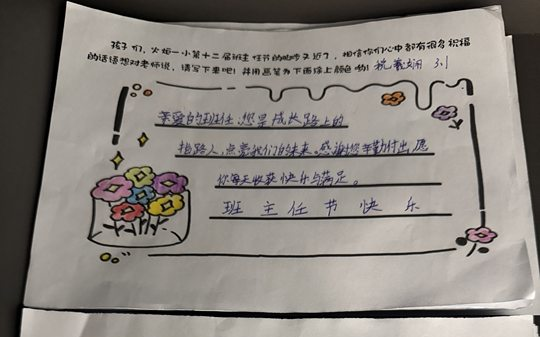 孩子们，火炬一小第十二届班主任节的脚步又近了，相信你们心中都有很多祝福
的话语想对老师说，请写下来吧！并用画笔为下面涂上颜色哟！
亲爱的班任，您是成长路上的
指路人，点亮我们的未来。感谢您辛勤付出，愿
你每天收获快乐与满足。
班主任节快乐